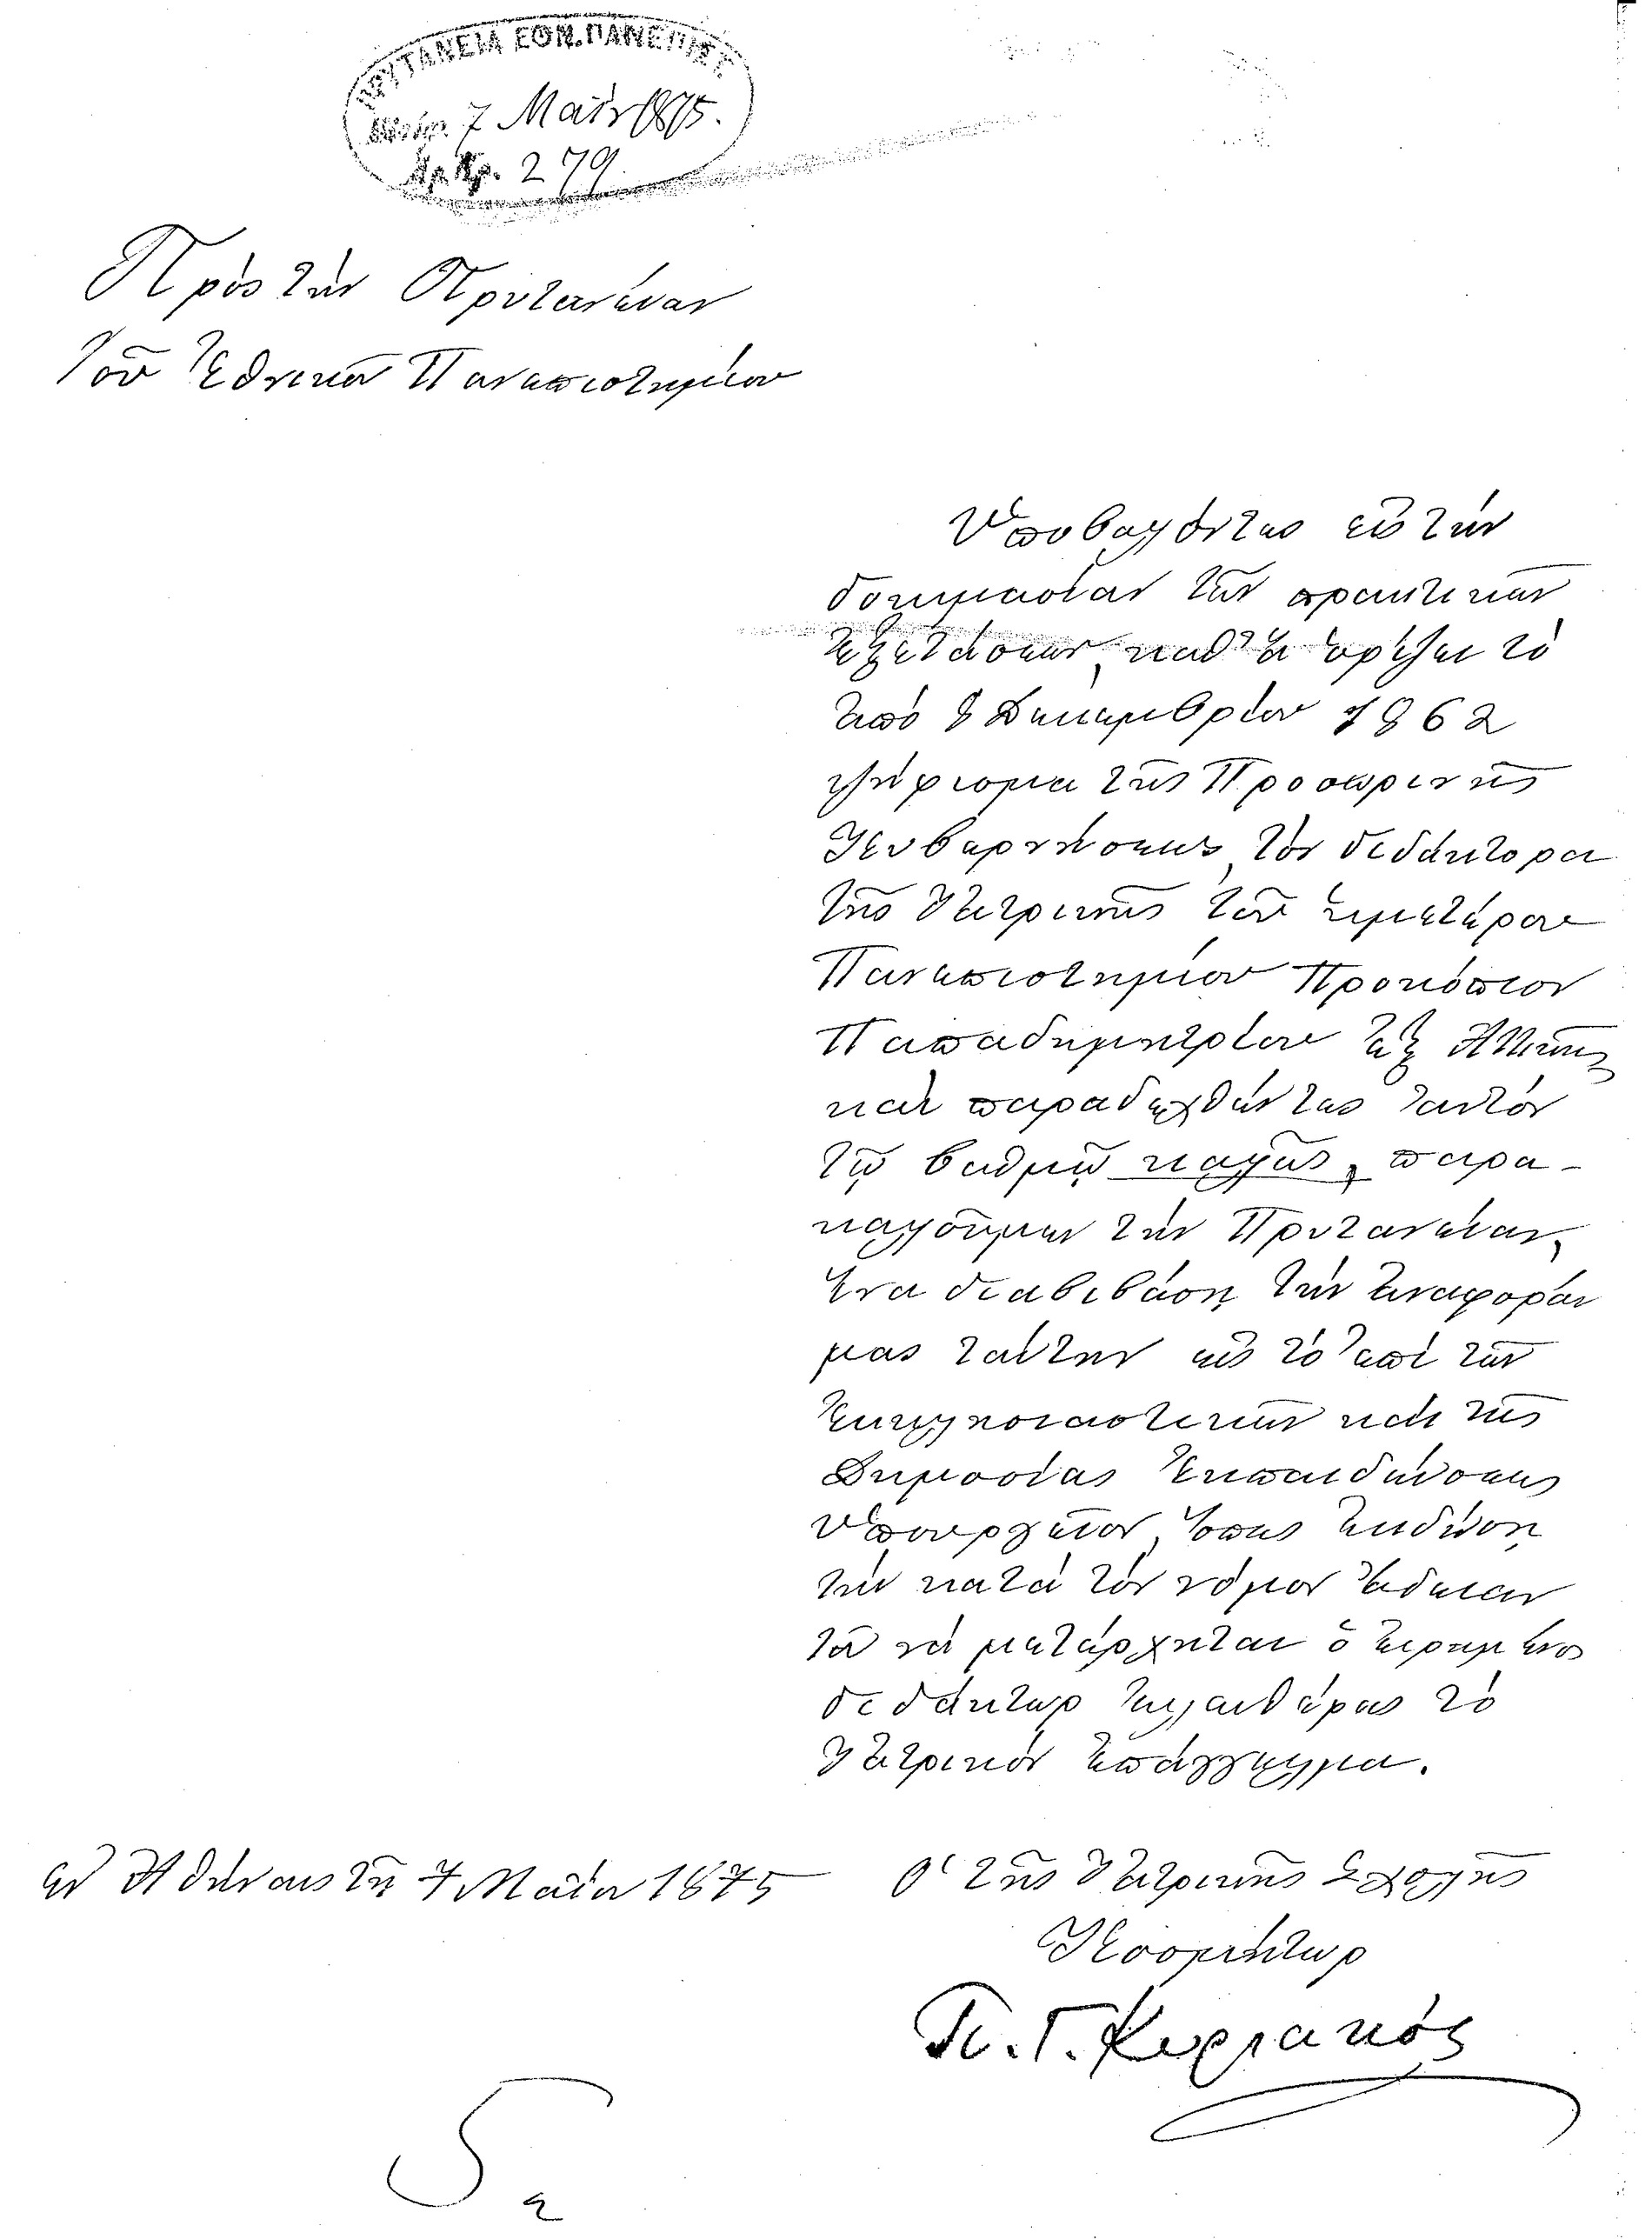 ΠΡΥΤΑΝΕΙΑ ΕΘΝ. ΠΑΝΕΠΙΣΤ.
7 Μαΐου 1875.
Αρ. Πρ. 279
Πρὸς τὴν Πρυτανείαν
Τοῦ Ἐθνικοῦ Πανεπιστημίου
Ὑποβαλόντες εἰς τὴν
δοκιμασίαν τῶν πρακτικῶν
ἐξετάσεων, καθ' ἃ ὁρίζει τὸ
ἀπὸ 8 Δεκεμβρίου 1862
ψήφισμα τῆς Προσωρινῆς
Κυβερνήσεως, τὸν διδάκτορα
τῆς Ἰατρικῆς τοῦ ἡμετέρου
Πανεπιστημίου Προκόπιον
Παπαδημητρίου ἐξ Ἀττικῆς
καὶ παραδεχθέντες αὐτὸν
τῷ βαθμῷ καλῶς, παρα-
καλοῦμεν τὴν Πρυτανείαν,
ἵνα διαβιβάσῃ τὴν ἀναφοράν
μας ταύτην εἰς τὸ ἐπὶ τῶν
Ἐκκλησιαστικῶν καὶ τῆς
Δημοσίας Ἐκπαιδεύσεως
Ὑπουργεῖον, ὅπως ἐκδώσῃ
τὴν κατὰ τὸν νόμον ἄδειαν
τοῦ νὰ μετέρχηται ὁ εἰρημένος
διδάκτωρ ἐλευθέρως τὸ
Ἰατρικὸν ἐπάγγελμα.
ἐν Ἀθήναις τῇ 7 Μαΐου 1875
Ὁ τῆς Ἰατρικῆς Σχολῆς
Κοσμήτωρ
Π. Γ. Κυριακός